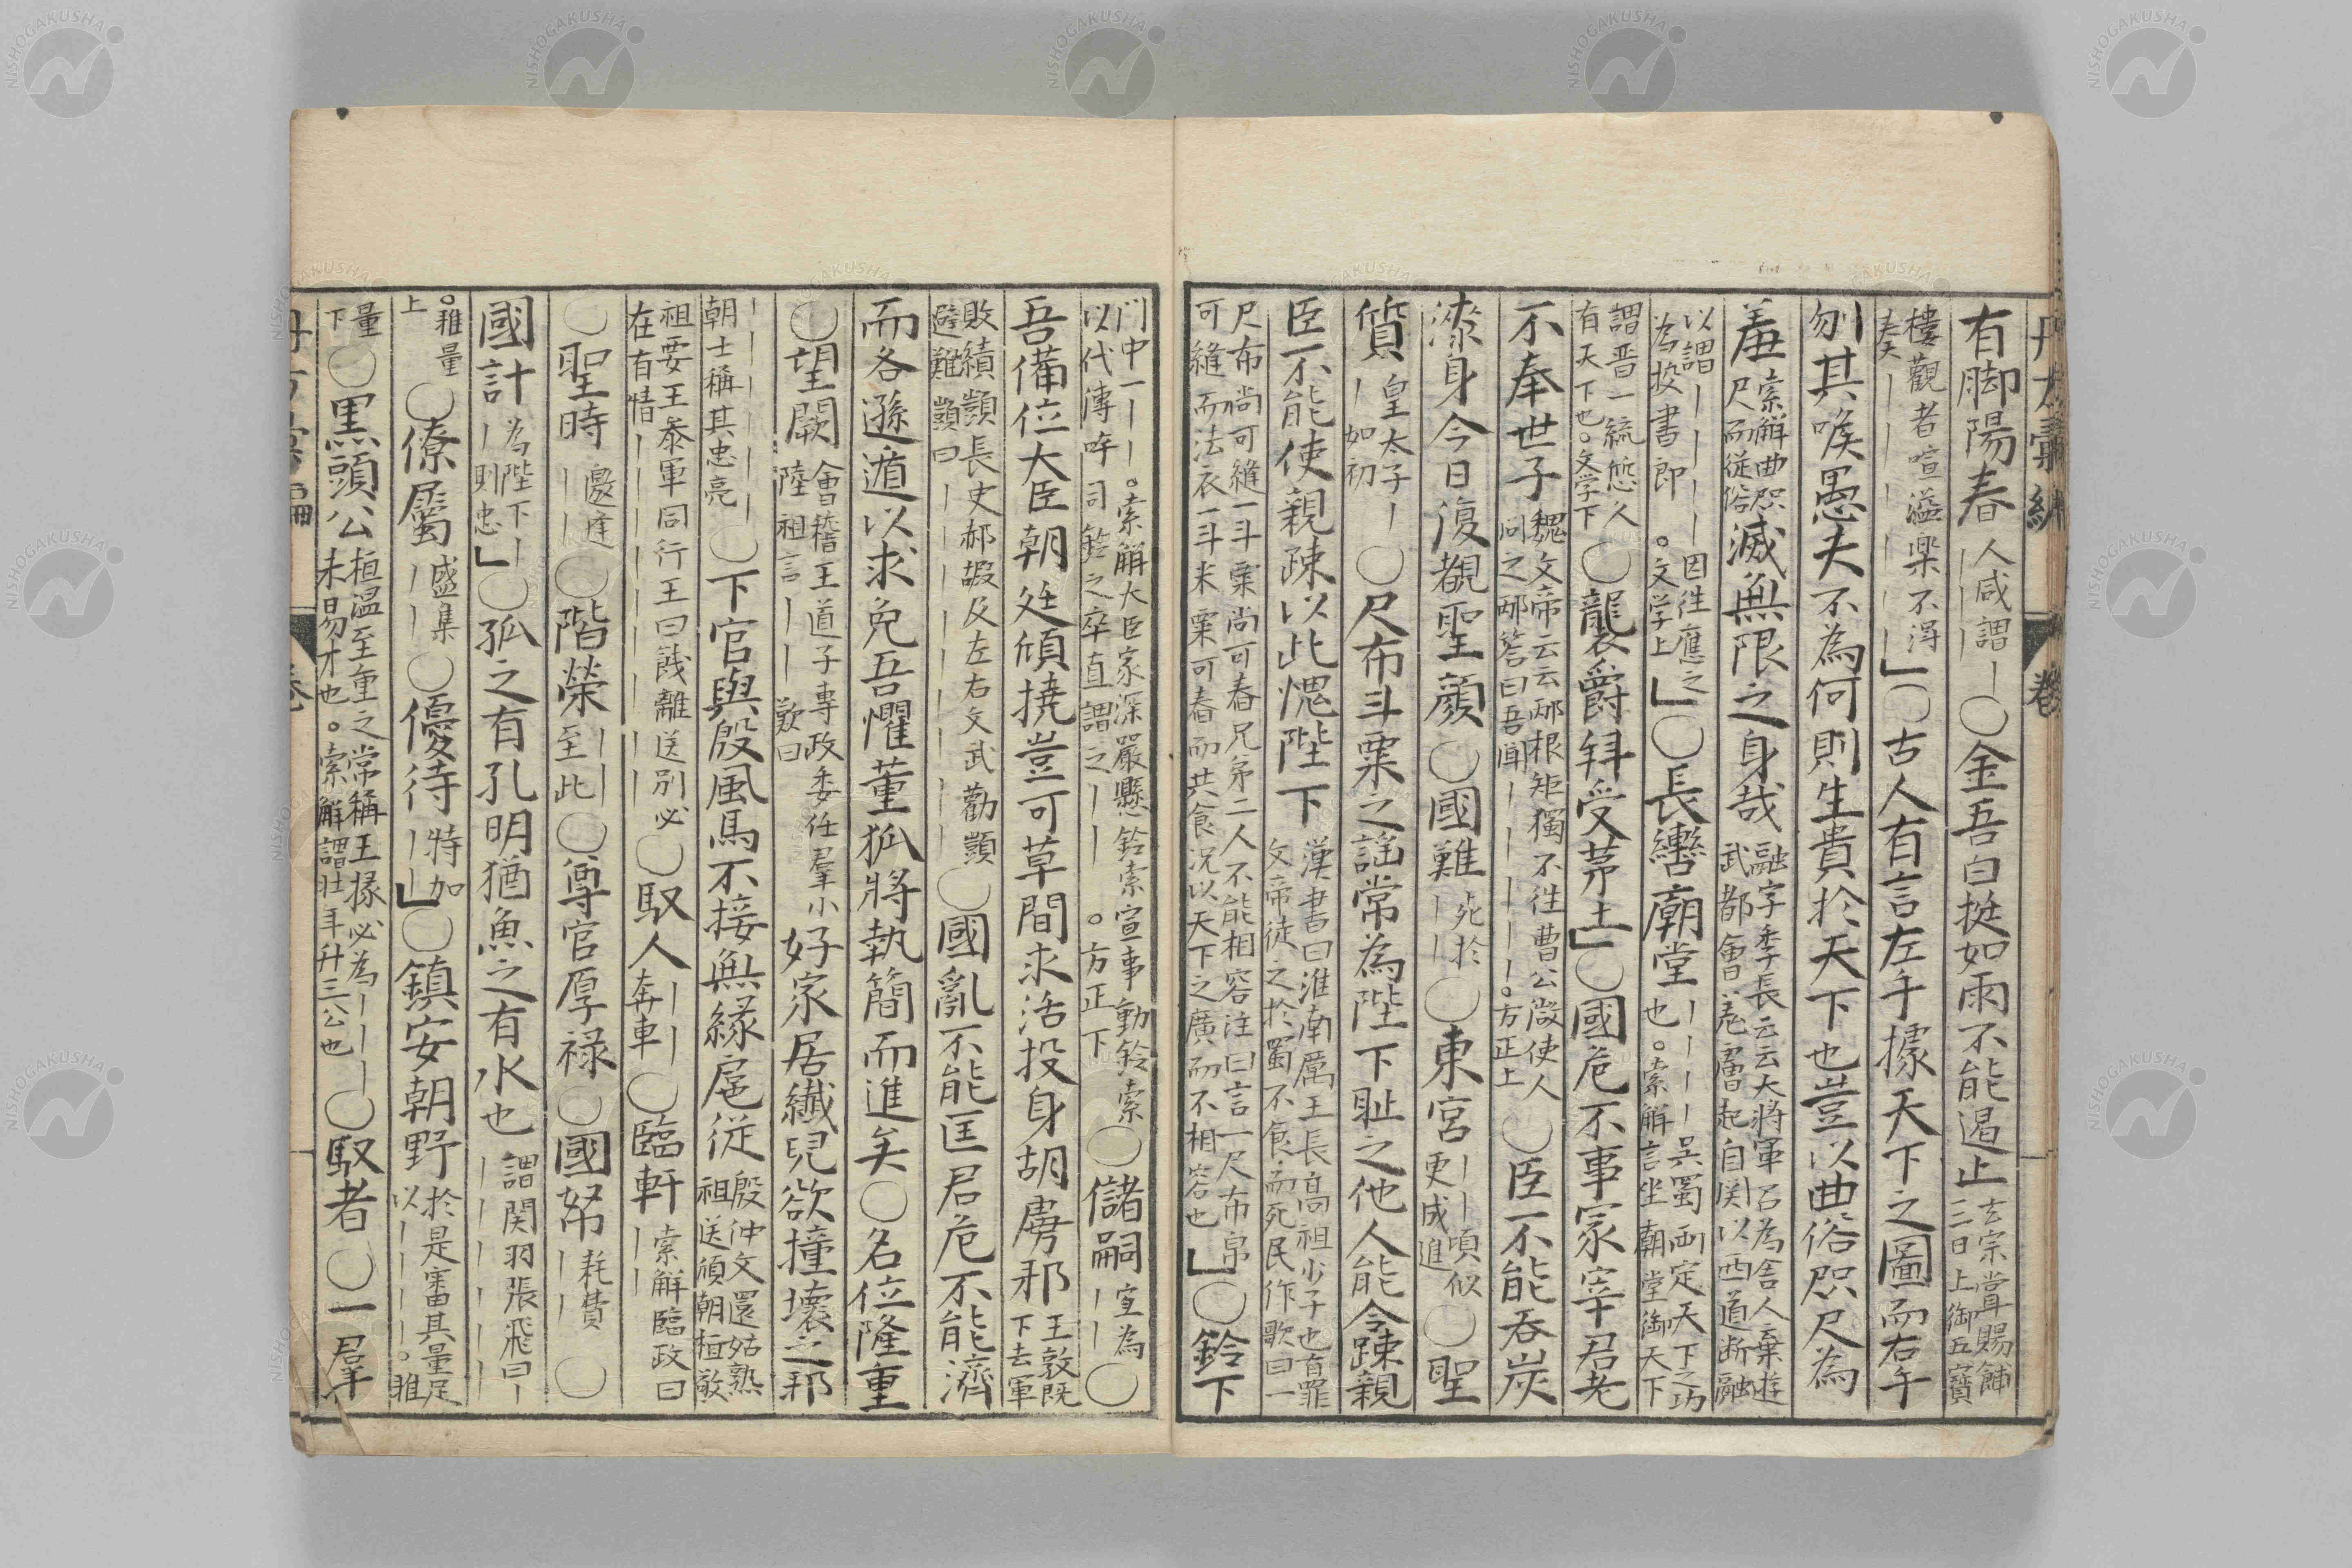 有脚陽春 人咸謂｜〇金吾白挺如雨不能遏止 玄宗嘗賜餔三日上御五寶
樓觀者喧溢楽不得奏｜｜｜｜｜｜」〇古人有言左手據天下之圖而右手
刎其喉愚夫不為何則生貴於天下也豈以曲俗咫尺為
羞 索解曲咫尺而従俗 滅無限之身哉 融字季長云云大将軍召為舎人棄遊武都會羌虜起自関以西道断融
以謂｜｜｜｜因徃應之為挍書郎。文学上」〇長轡廟堂 ｜｜｜｜呉蜀両定天下之功也。索解言坐朝堂御天下
謂晋一統㤙人有天下也。文学下〇襲爵拜受茅土」〇國危不事冢宰君老
不奉世子 魏文帝云云邴根矩獨不徃曹公微使人问之邴答曰吾聞｜｜｜｜｜｜。方正上〇臣不能吞炭
漆身今日復覩聖顔〇國難 死於｜｜〇東宮 ｜｜頃似更成進〇聖
質 皇太子｜｜如初〇尺布斗粟之謡常為陛下耻之他人能令踈親
臣不能使親踈以此愧陛下 漢書曰淮南厲王長高祖少子也有罪文帝徒之於蜀不食而死民作歌曰一
尺布尚可縫一斗粟尚可舂兄弟二人不能相容注曰言一尺布帛可縫而法衣一斗米粟可舂而共食况以天下之廣而不相容也」〇鈴下
門中一｜｜。索解大臣家深嚴懸鈴索宣事動鈴索以代傳呼司鈴之卒直謂之｜｜。方正下〇儲嗣 宜為｜｜〇
吾備位大臣朝廷傾撓豈可草間求活投身胡虜邪 王敦既下去軍
敗績顗長史郝嘏及左右文武勸顗避難顗曰｜｜｜｜｜｜〇國亂不能匡君危不能濟
而各遜遁以求免吾懼董狐將執簡而進矣〇名位隆重
〇望闕 會稽王道子專政委任羣小陸祖言｜｜歎曰 好家居纖兒欲撞壊之邪
｜｜｜｜｜朝士稱其忠亮〇下官與殷風馬不接無緣扈従 殷仲文還姑熟祖送傾朝桓敬
祖要王叅軍同行王曰餞離送別必在有情｜｜｜｜｜｜〇馭人 ｜｜奔車〇臨軒 索解臨政曰｜｜
〇聖時 邀逢｜｜〇階榮 ｜｜至此〇尊官厚禄〇國帑 耗費｜｜〇
國計 為陛下｜｜則忠」〇孤之有孔明猶魚之有水也 謂関羽張飛曰｜｜｜｜｜｜
。雅量上〇僚屬 盛集｜｜〇優待 特加｜｜」〇鎮安朝野 於是審其量足以｜｜｜｜。雅
量下〇黒頭公 桓温至重之常稱王掾必為｜｜｜未易才也。索解謂壮年升三公也〇馭者〇一羣